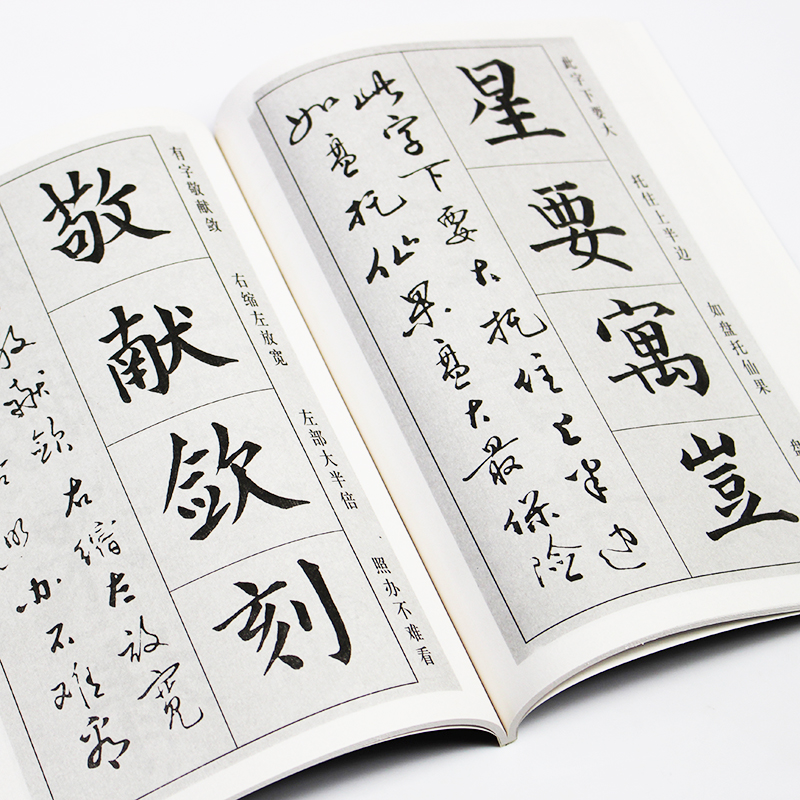 此字下要大
托住上半边
如盘托仙果
盘
星
要
寓
豈
此字下要大托住上半边
如盘托仙果盘大最保险
有字敬献敛
右缩左放宽
左部大半倍
照办不难看
敬
献
敛
刻
献敛右缩左放宽
办不难看